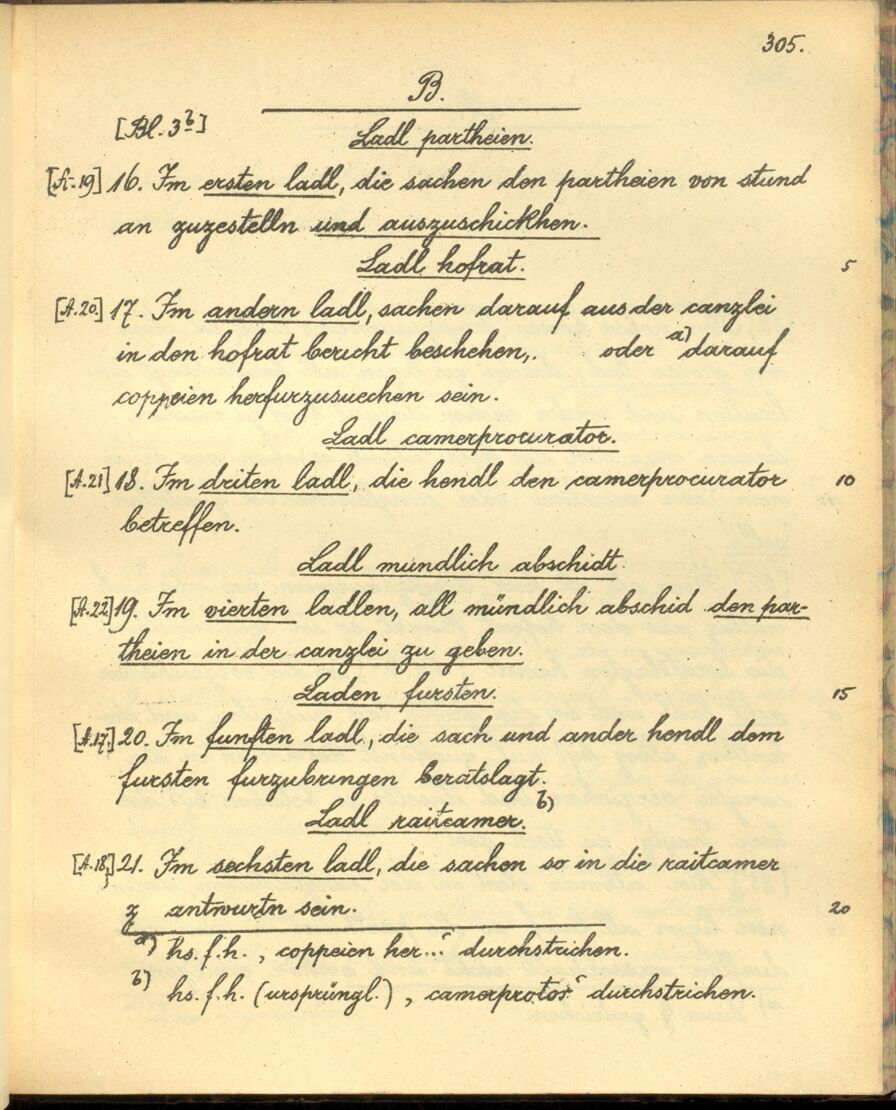 305.
B.
[Bl. 3b]
Ladl partheien.
[A. 19] 16. Im ersten ladl, die sachen den partheien von stund
an zuzestelln und auszuschickhen.
Ladl hofrat. 5
[A. 20] 17. Im andern ladl, sachen darauf aus der canzlei
in den hofrat bericht beschehen,. oder a) darauf
coppeien herfurzusuechen sein.
Ladl camerprocurator.
[A. 21] 18. Im driten ladl, die hendl den camerprocurator 10
betreffen.
Ladl mundlich abschidt.
[A. 22] 19. Im vierten ladlen, all mündlich abschid den par-
theien in der canzlei zu geben.
Laden fursten. 15
[A. 17.] 20. Im funften ladl, die sach und ander hendl dem
fursten furzubringen beratslagt.
Ladl raitcamer. b)
[A. 18.] 21. Im sechsten ladl, die sachen so in die raitcamer
z antwurtn sein. 20
a) hs. f. h. , coppeien her...‘ durchstrichen.
b) hs. f. h. (ursprüngl.) , camerprotor‘ durchstrichen.